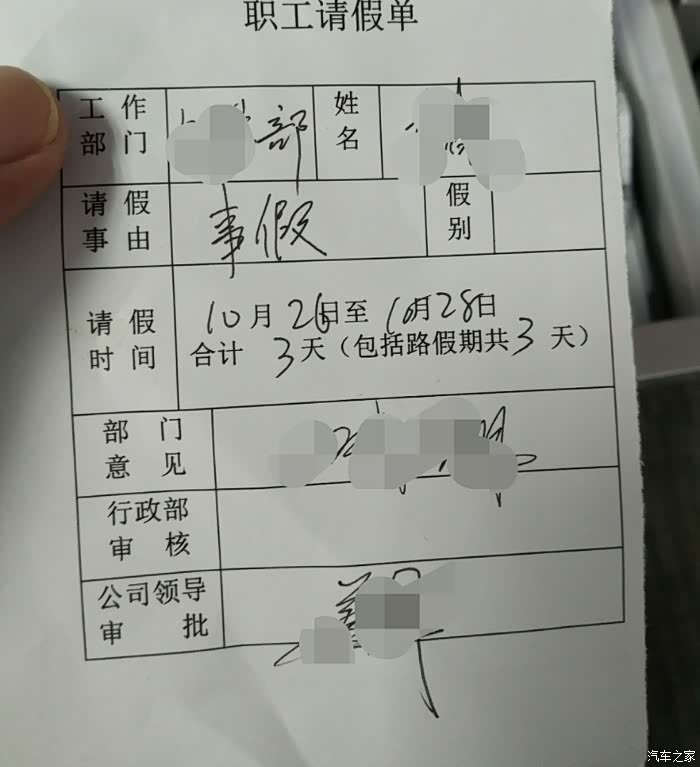 职工请假单
工作部门 部 姓名
请假事由 事假 假别
请假时间 10月26日至10月28日
合计 3天（包括路假期共3天）
部门意见
行政部审核
公司领导审批
汽车之家